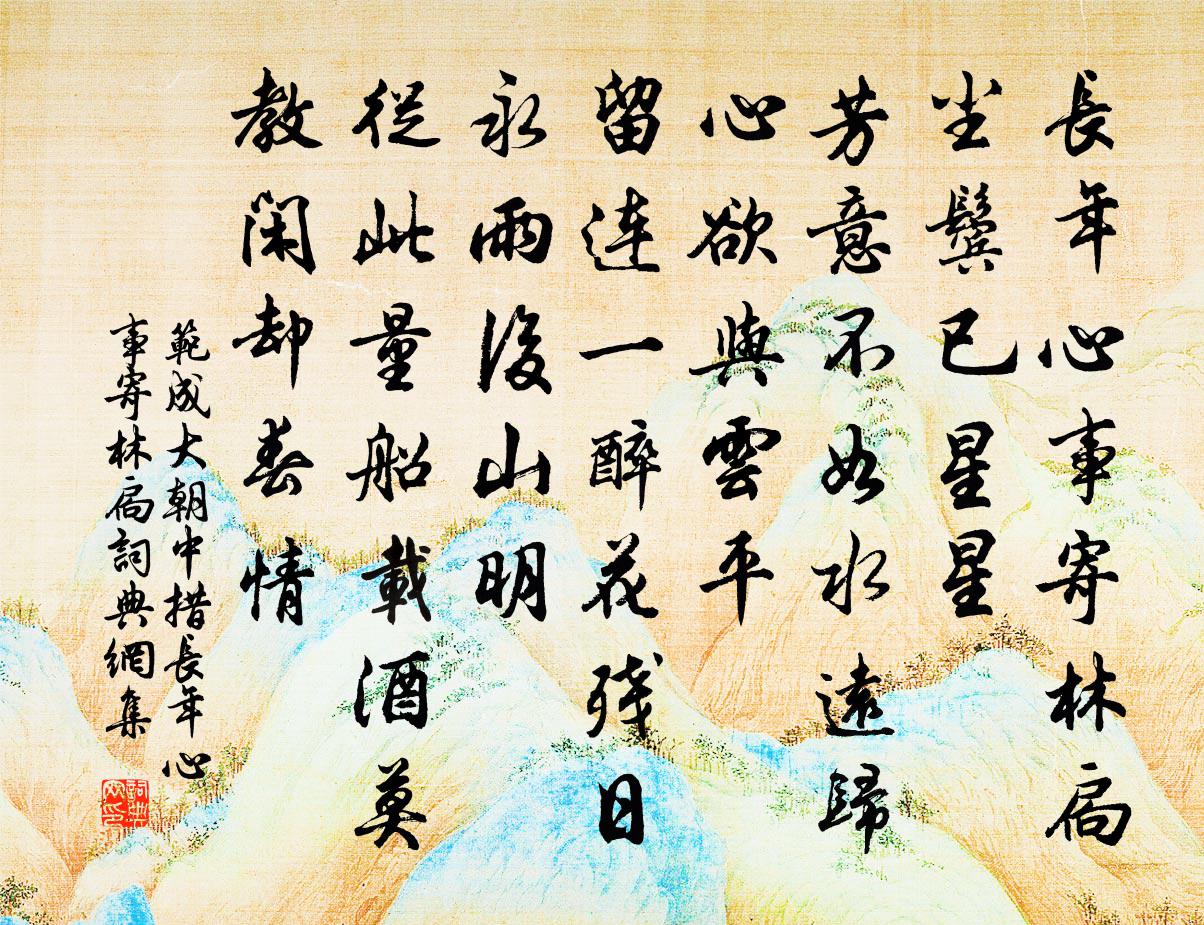 長年心事寄林扃
尘鬢已星星
芳意不如水遠歸
心欲與雲平
留連一醉花殘日
永雨後山明
從此量船載酒莫
教閑却春情
範成大朝中措長年心
事寄林扃詞典網集